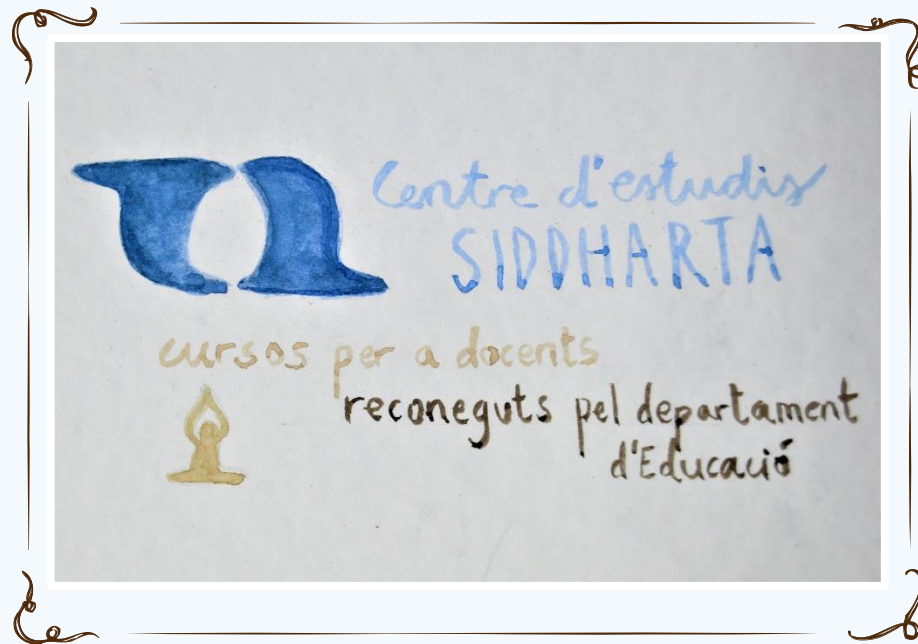 Centre d'estudis
SIDDHARTA
cursos per a docents
reconeguts pel departament
d'Educació